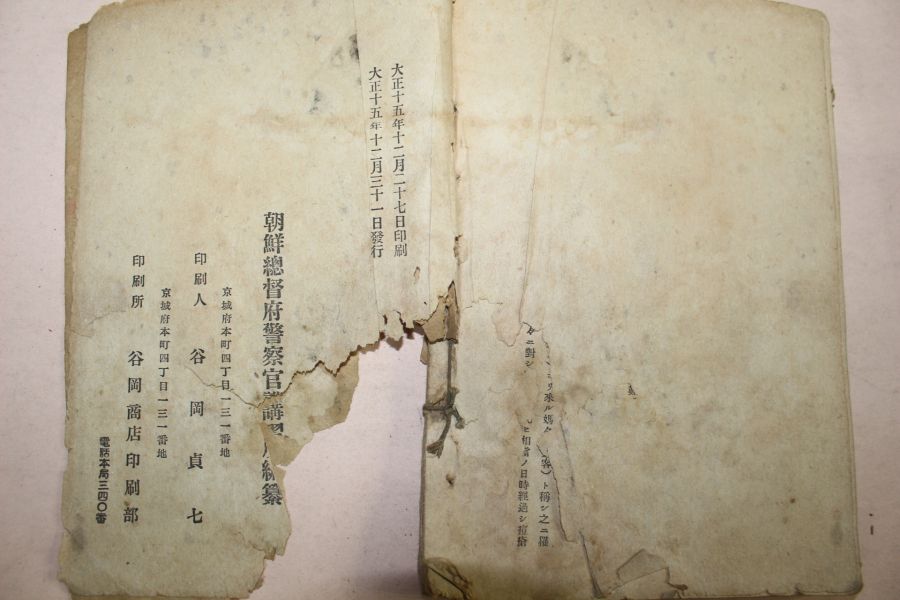 大正十五年十二月二十七日印刷
大正十五年十二月三十一日發行
朝鮮總督府警察官講習 編纂
京城府本町四丁目一三一番地
印刷人 谷岡貞七
京城府本町四丁目一三一番地
印刷所 谷岡商店印刷部
電話本局三四〇番
リ來ル媽々 ト稱シ之ニ罹
ニ對シ
ノ日時經過シ